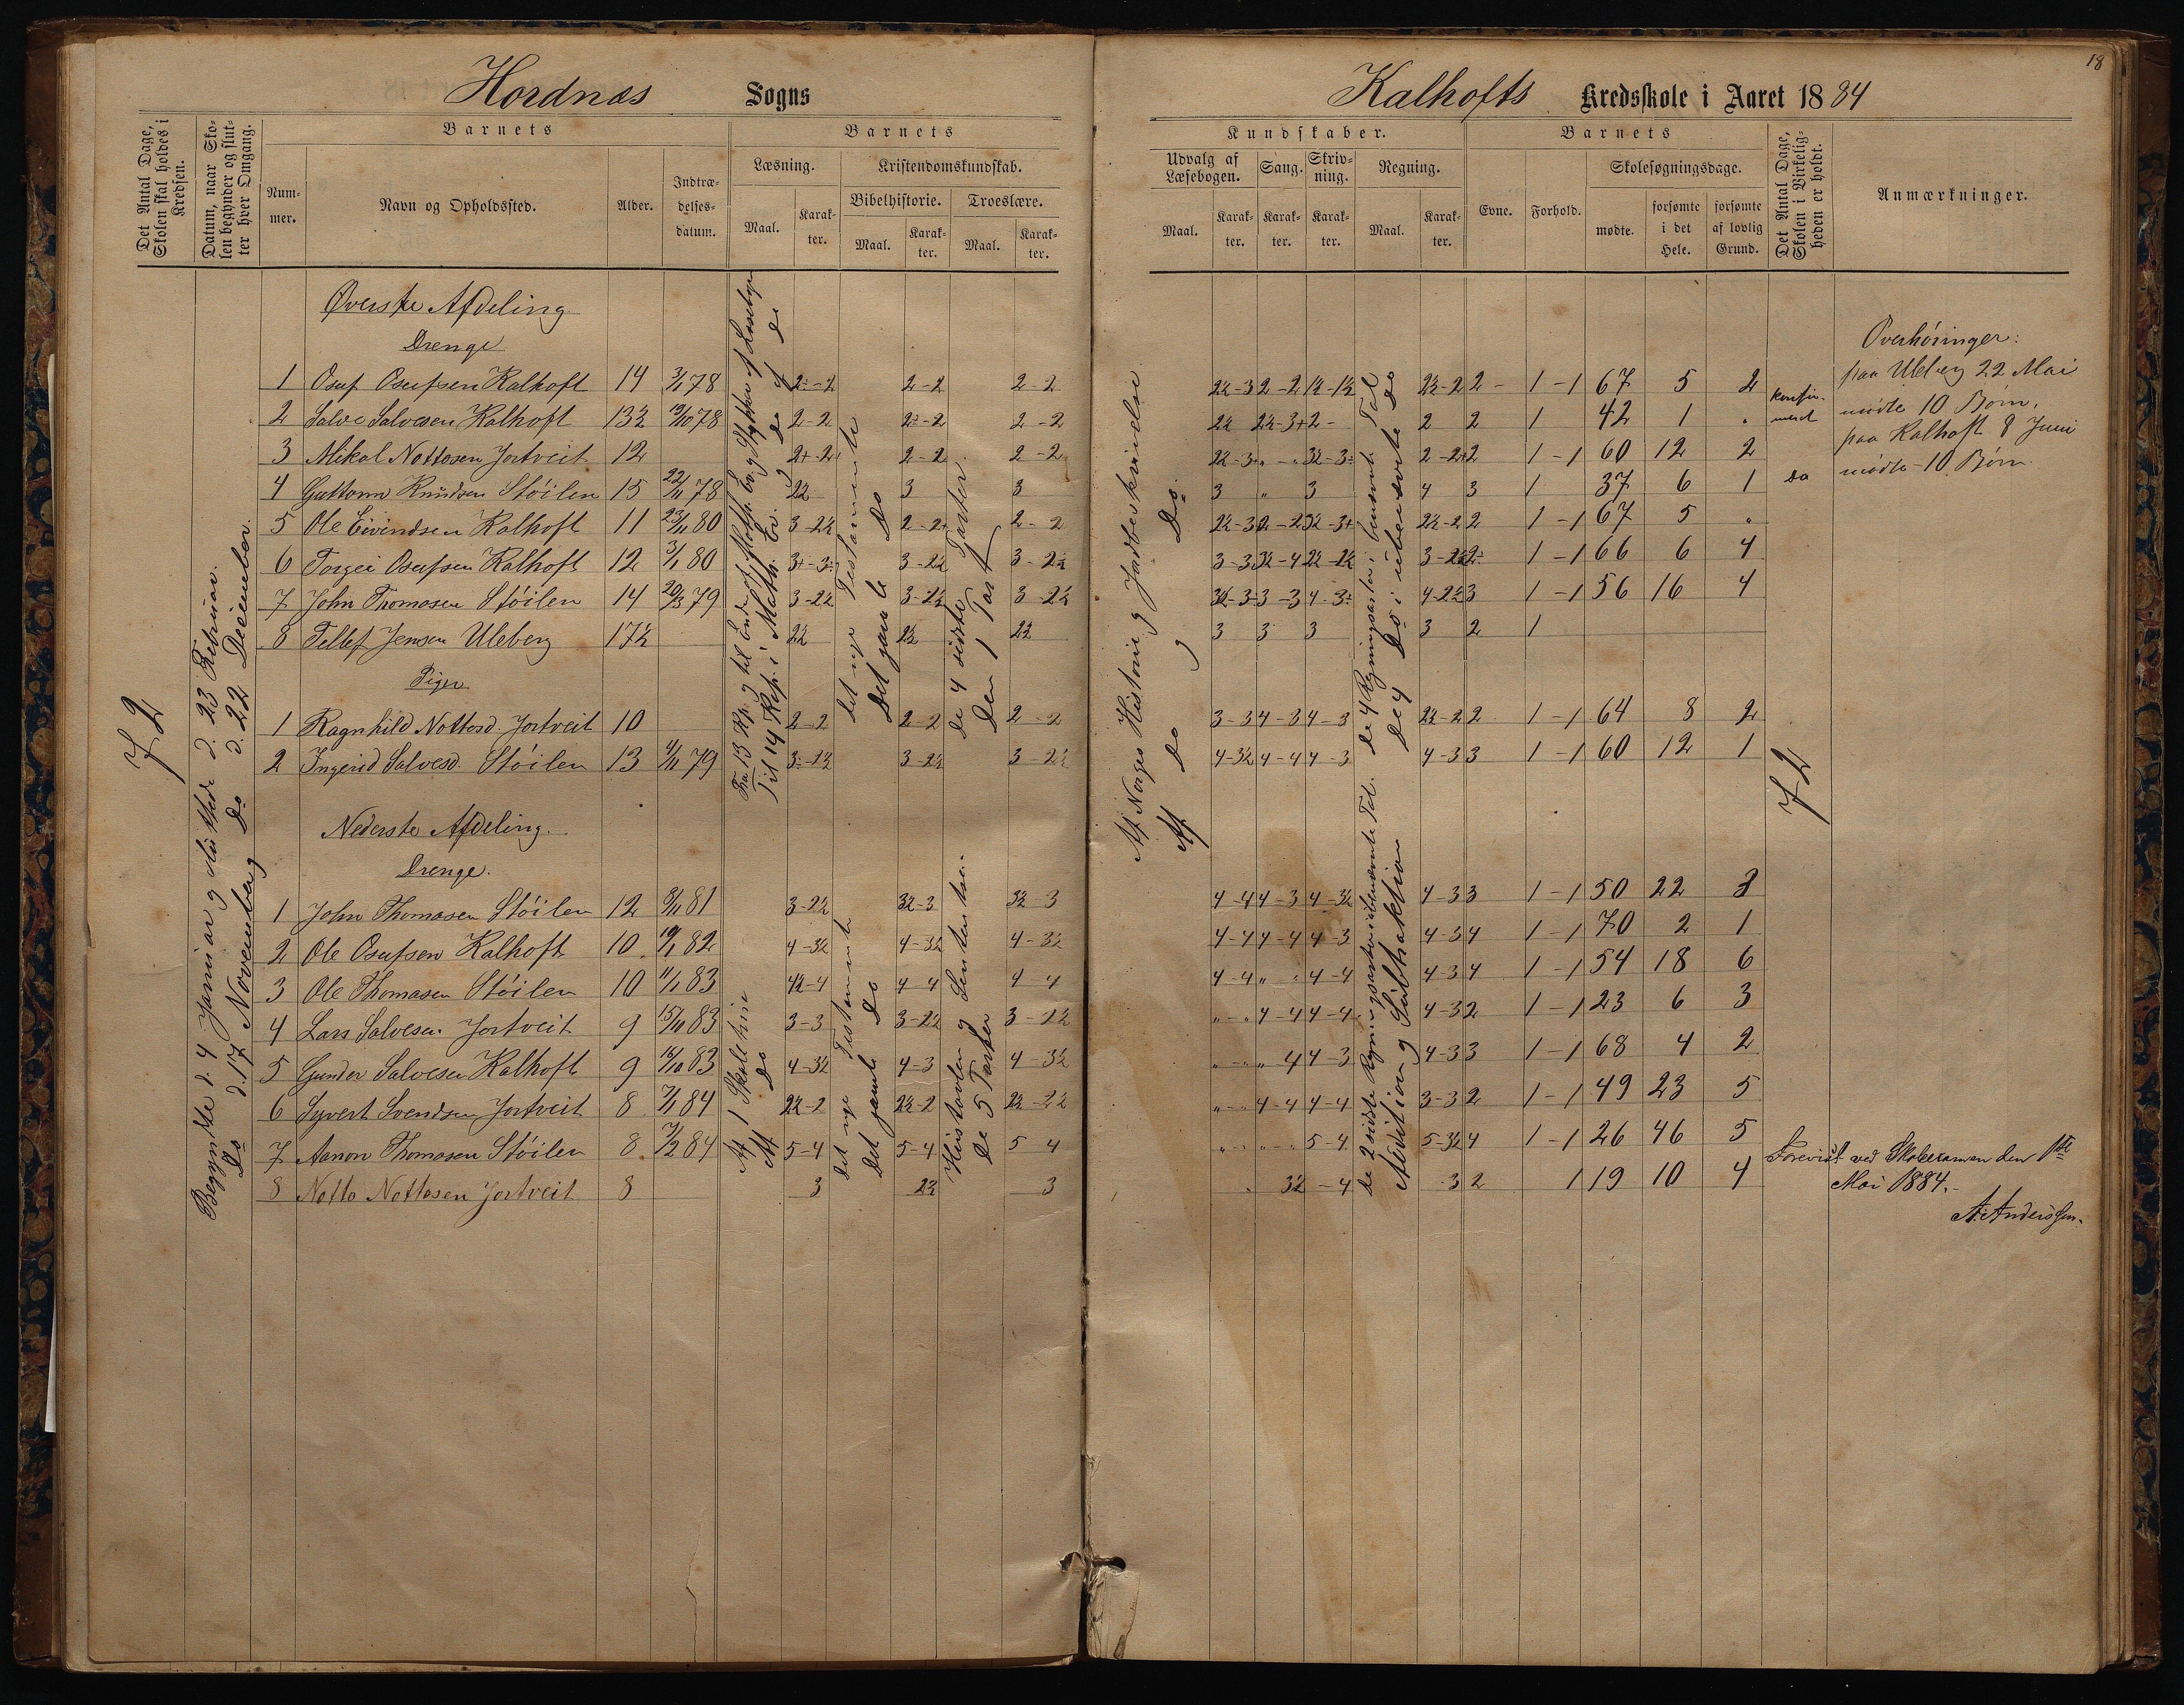 18
Hordnæs Sogns
Kalhofts Kredsskole i Aaret 1884
Det Antal Dage, Skolen skal holdes i Kredsen.
Datum, naar Skolen begynder og slutter hver Omgang.
Barnets
Nummer.
Navn og Opholdssted.
Alder.
Indtrædelsesdatum.
Barnets
Læsning.
Maal.
Karakter.
Kristendomskundskab.
Bibelhistorie.
Maal.
Karakter.
Troeslære.
Maal.
Karakter.
Kundskaber.
Udvalg af Læsebogen.
Maal.
Karakter.
Sang.
Karakter.
Skrivning.
Karakter.
Regning.
Maal.
Karakter.
Barnets
Evne.
Forhold.
Skolesøgningsdage.
mødte.
forsømte i det Hele.
forsømte af lovlig Grund.
Det Antal Dage, Skolen i Virkeligheden er holdt.
Anmærkninger.
72
Begyndte d. 4 Januar og sluttede d. 23 Februar.
Do d. 17 November og Do d. 22 December.
Øverste Afdeling
Drenge
1 Osuf Osufsen Kalhoft 14 3/1 78 2-2 2-2 1-1 67 5 2
2 Salve Salvesen Kalhoft 13½ 19/10 78 2-2 2-2 2 2 1 42 1 "
3 Mikal Nottosen Jortveit 12 2-2 2-2 1-1 60 12 2
4 Guttorm Knudsen Stóilen 15 22/11 78 2½ 3 3 3 " 3 4 3 1 37 6 1
5 Ole Eivindsen Kalhoft 11 23/11 80 3-2½ 2-2+ 2-2 1-1 67 5 "
6 Torgei Osufsen Kalhoft 12 3/1 80 3-2½ 3-2½ 1-1 66 6 4
7 John Thomasen Stóilen 14 20/3 79 3-2½ 3-2½ 3-2½ 1-1 56 16 4
8 Tellef Jensen Uleberg 17½ 2½ 2½ 2½ 3 3 3 3 2 1
Piger
1 Ragnhild Nottosd. Jortveit 10 2-2 2-2 2-2 3-3 4-3 4-3 2½-2 2 1-1 64 8 2
2 Ingerid Salvesd. Stóilen 13 4/11 79 3-2½ 3-2½ 4-3½ 4-4 4-3 4-3 3 1-1 60 12 1
Nederste Afdeling.
Drenge.
1 John Thomasen Stóilen 12 3-2½ 3½-3 3½-3 4-4 4-3 4-3½ 4-3 3 1-1 50 22 3
2 Ole Osufsen Kalhoft 10 19/1 82 4-3½ 4-3½ 4-3½ 4-4 4-4 4-3 4-3 4 1-1 70 2 1
3 Ole Thomasen Stóilen 10 11/1 83 4½-4 4-4 4-4 4-4 " " 4-4 4-3 4 1-1 54 18 6
4 Lars Salvesen Jortveit 9 15/11 83 3-3 3-2½ 3-2½ "-" 4-4 4-4 4-3 2 1-1 23 6 3
5 Gunder Salvesen Kalhoft 9 16/10 83 4-3½ 4-3 4-3½ "-" " 4 4-3 4-3 3 1-1 68 4 2
6 Syvert Svendsen Jortveit 8 7/1 84 2½-2 2½-2 2½-2½ "-" 4-4 4-4 3-3 2 1-1 49 23 5
7 Aanon Thomasen Stóilen 8 7/2 84 5-4 5-4 5-4 "-" "-" 5-4 5-3½ 4 1-1 26 46 5
8 Notto Nottosen Jortveit 8 3 2½ 3 3½ -4 3 2 1 19 10 4
Til 14
det nye Testamente
Det gamle Do
De 4 sidste Parter
Den 1 Part
Af Norges Historie og Jordbeskrivelse
Af Do og Do.
de 4 Regningsarter i benævnte Tal
De 4 Do i ubenævnte Do
Af 1 Skoletrin
Af Do
det nye Testamente
Det gamle Do
De 5 Parter
de 2 sidste Regningsarter i ubenævnte Tal.
Addition og Subtraktion
konfirmert
Do
72
Overhøringer:
paa Uleberg 22 Mai
mødte 10 Børn,
paa Kalhoft 8 Juni
mødte 10 Børn.
Forevist ved Skoleexamen den 1ste
Mai 1884.
A. Anderssen.